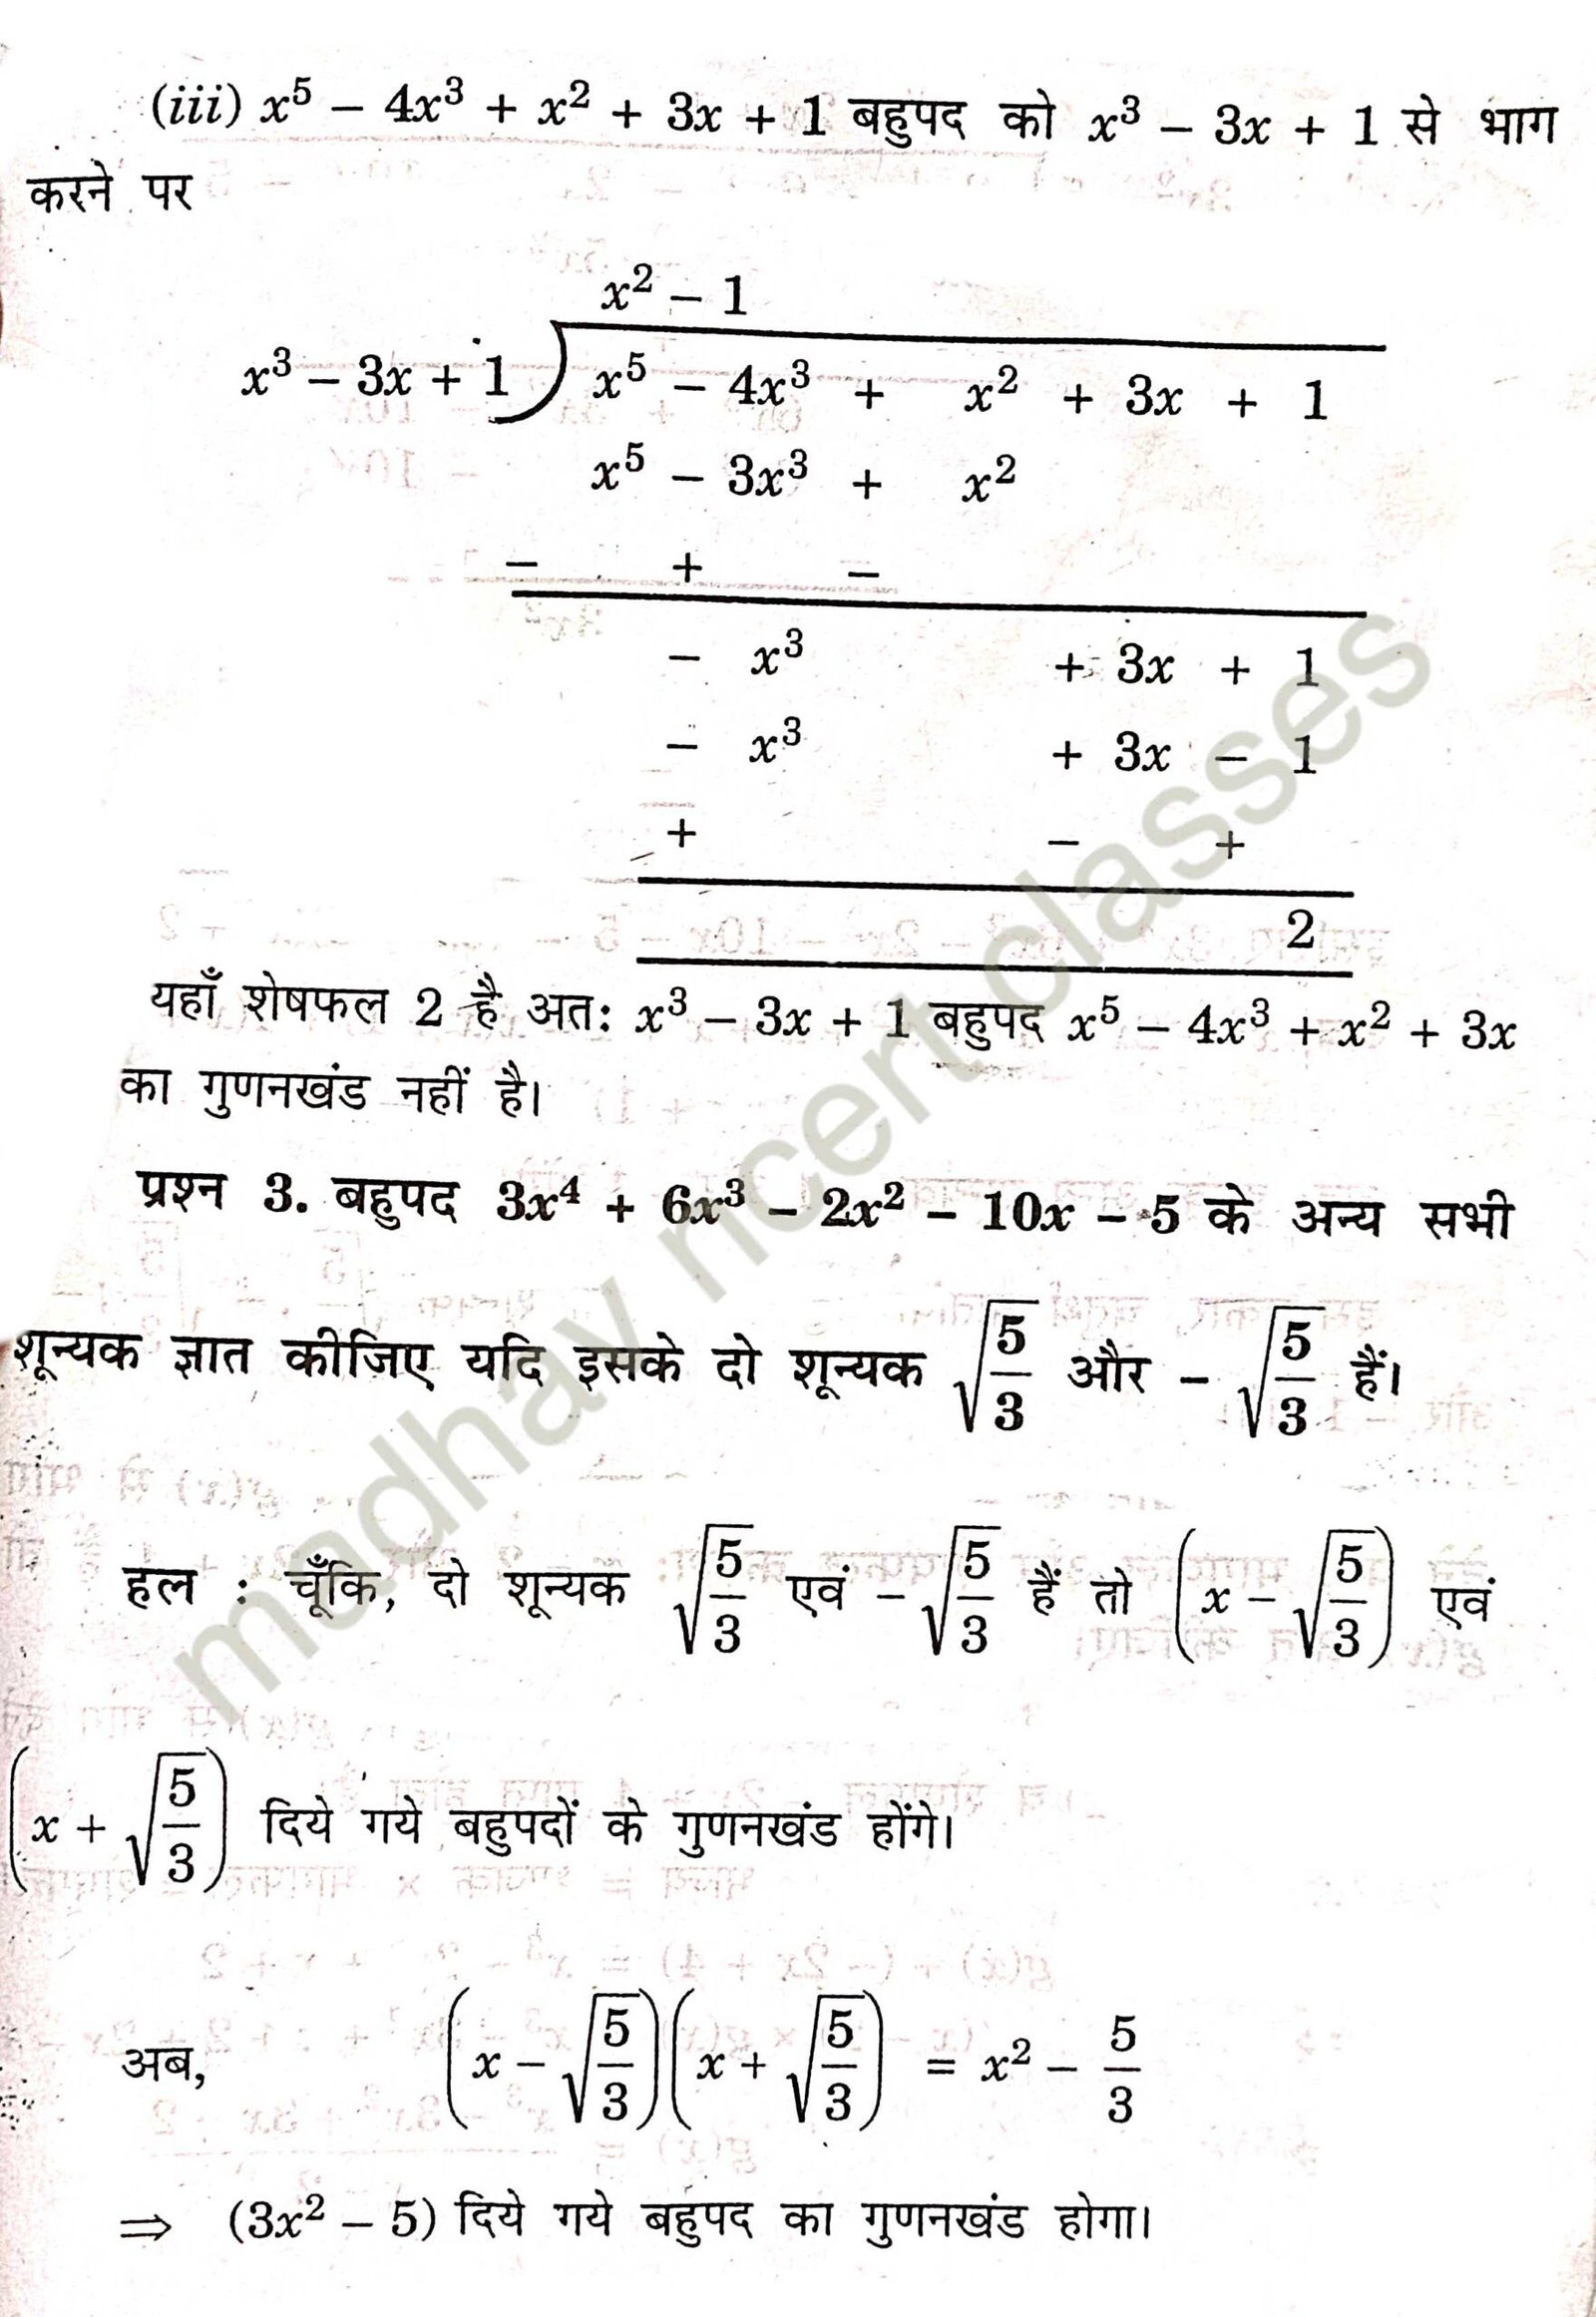 (iii) x⁵ – 4x³ + x² + 3x + 1 बहुपद को x³ – 3x + 1 से भाग
करने पर
x² – 1
x³ – 3x + 1 ) x⁵ – 4x³ + x² + 3x + 1
x⁵ – 3x³ + x²
– + –
– x³ + 3x + 1
– x³ + 3x – 1
+ – +
2
यहाँ शेषफल 2 है अतः x³ – 3x + 1 बहुपद x⁵ – 4x³ + x² + 3x
का गुणनखंड नहीं है।
प्रश्न 3. बहुपद 3x⁴ + 6x³ – 2x² – 10x – 5 के अन्य सभी
शून्यक ज्ञात कीजिए यदि इसके दो शून्यक √(5/3) और – √(5/3) हैं।
हल : चूँकि, दो शून्यक √(5/3) एवं – √(5/3) हैं तो (x – √(5/3)) एवं
(x + √(5/3)) दिये गये बहुपदों के गुणनखंड होंगे।
अब, (x – √(5/3))(x + √(5/3)) = x² – 5/3
⇒ (3x² – 5) दिये गये बहुपद का गुणनखंड होगा।
madhav ncert classes